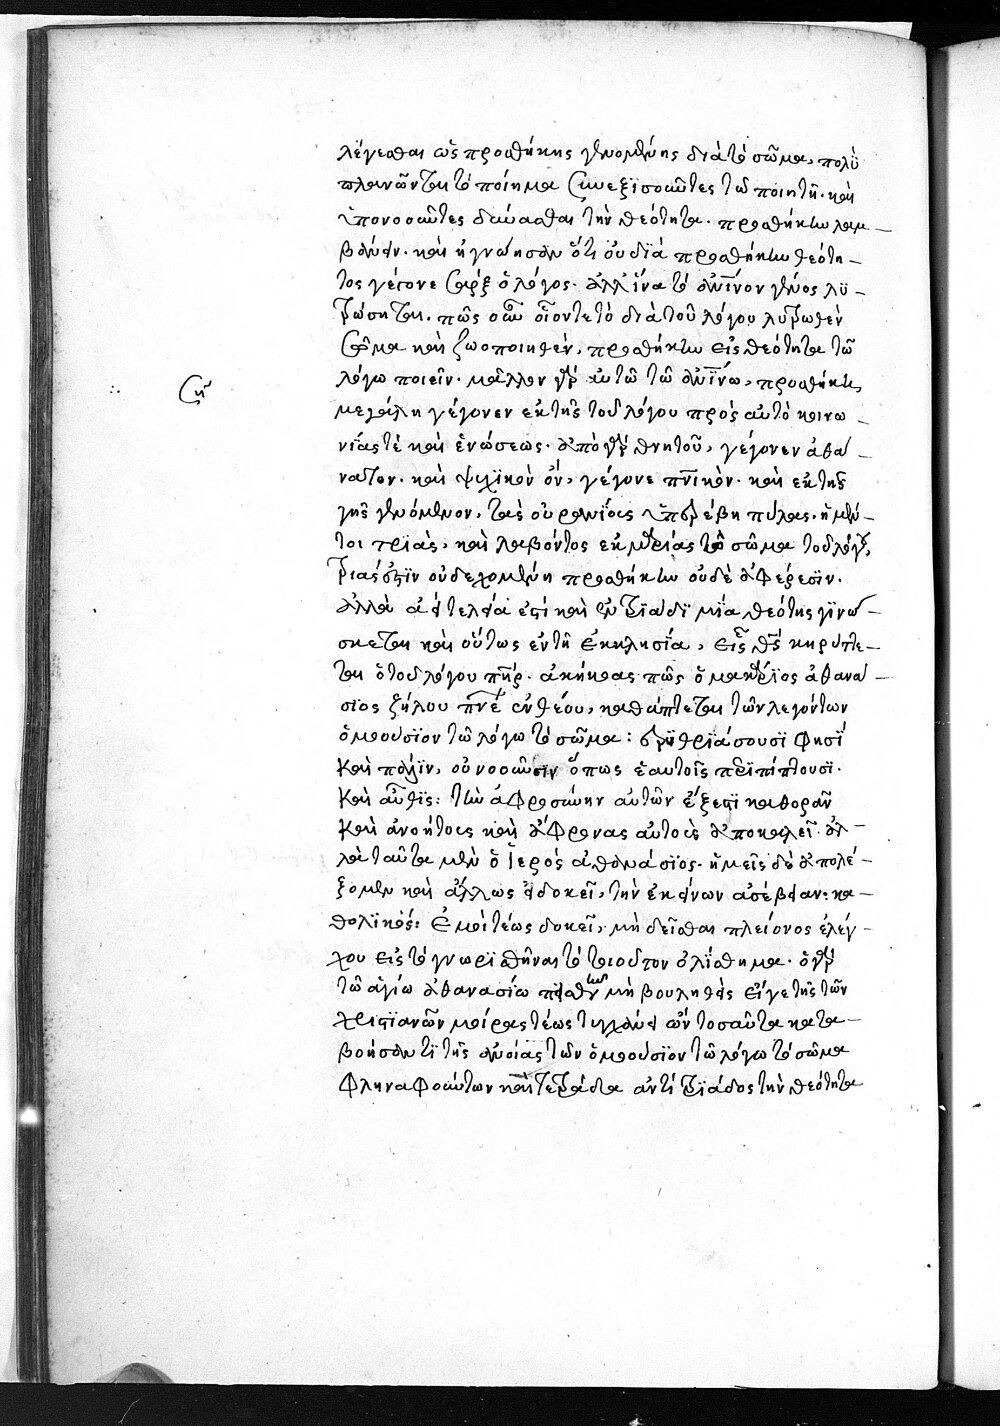 λέγεσθαι ὡς προσθήκης γενομένης διὰ τὸ σῶμα, πολὺ
πλανῶνται τὸ ποίημα συνεξισοῦντες τῷ ποιητῇ. καὶ
ὑπονοοῦντες δύνασθαι τὴν θεότητα. προσθήκην λαμ-
βάνειν. καὶ ἠγνόησαν ὅτι οὐ διὰ προσθήκην θεότη-
τος γέγονε σὰρξ ὁ λόγος. ἀλλ' ἵνα τὸ ἀνῖνον γένος λυ-
τρώσηται. πῶς οὖν οἴονται τὸ διὰ τοῦ λόγου λυτρωθὲν
σῶμα καὶ ζωοποιηθὲν, προσθήκην εἰς θεότητα τῷ
λόγῳ ποιεῖν. μᾶλλον γὰρ αὐτῷ τῷ ἀνίνῳ, προσθήκη
μεγάλη γέγονεν ἐκ τῆς τοῦ λόγου πρὸς αὐτὸ κοινω-
νίας τὲ καὶ ἑνώσεως. ἀπὸ γὰρ θνητοῦ, γέγονεν ἀθά-
νατον. καὶ ψυχικὸν ὂν, γέγονε πνικόν. καὶ ἐκ τῆς
γῆς γενόμενον, τὰς οὐρανίας ὑπερέβη πύλας. ἡ μέν-
τοι τριὰς, καὶ λαβόντος ἐκ μαρίας τὸ σῶμα τοῦ λόγου,
τριάς ἐστὶν οὐ δεχομένη προσθήκην οὐδὲ ἀφαίρεσιν.
ἀλλὰ ἀεὶ τελεία ἐστὶ καὶ ἐν τριάδι μία θεότης γινώ-
σκεται καὶ οὕτως ἐν τῇ ἐκκλησίᾳ, εἷς θς κηρύττε-
ται ὁ τοῦ λόγου πηρ. ἀκήκοας πῶς ὁ μακάριος ἀθανά-
σιος ζήλου πνς ἐνθέου, καθάπτεται τῶν λεγόντων
ὁμοούσιον τῷ λόγῳ τὸ σῶμα: ἐρυθριάσουσι φησὶ
Καὶ πάλιν, οὐ νοοῦσιν ὅπως ἑαυτοῖς περιπίπτουσι.
Καὶ αὖθις: τὴν ἀφροσύνην αὐτῶν ἔξεστι καθορᾶν
Καὶ ἀνοήτους καὶ ἄφρονας αὐτοὺς ἀποκαλεῖ. ἀλ-
λὰ ταῦτα μὲν ὁ ἱερὸς ἀθανάσιος. ἡμεῖς δὲ ἀπολέ-
ξομεν καὶ ἄλλως εἰ δοκεῖ, τὴν ἐκείνων ἀσέβειαν: κα-
θολικός: Ἐμοὶ τέως δοκεῖ, μὴ δεῖσθαι πλείονος ἐλέγ-
χου εἰς τὸ γνωρισθῆναι τὸ τοιοῦτον ὀλίσθημα. ὁ γὰρ
τῷ ἁγίῳ ἀθανασίῳ πεισθῆναι μὴ βουληθεὶς εἴγε τῆς τῶν
χριστιανῶν μοίρας τέως τυγχάνει ὢν τοσαῦτα κατα-
βοήσαντι τῆς ἀνοίας τῶν ὁμοούσιον τῷ λόγῳ τὸ σῶμα
φληναφούντων καὶ τετράδα ἀντὶ τριάδος τὴν θεότητα
ση